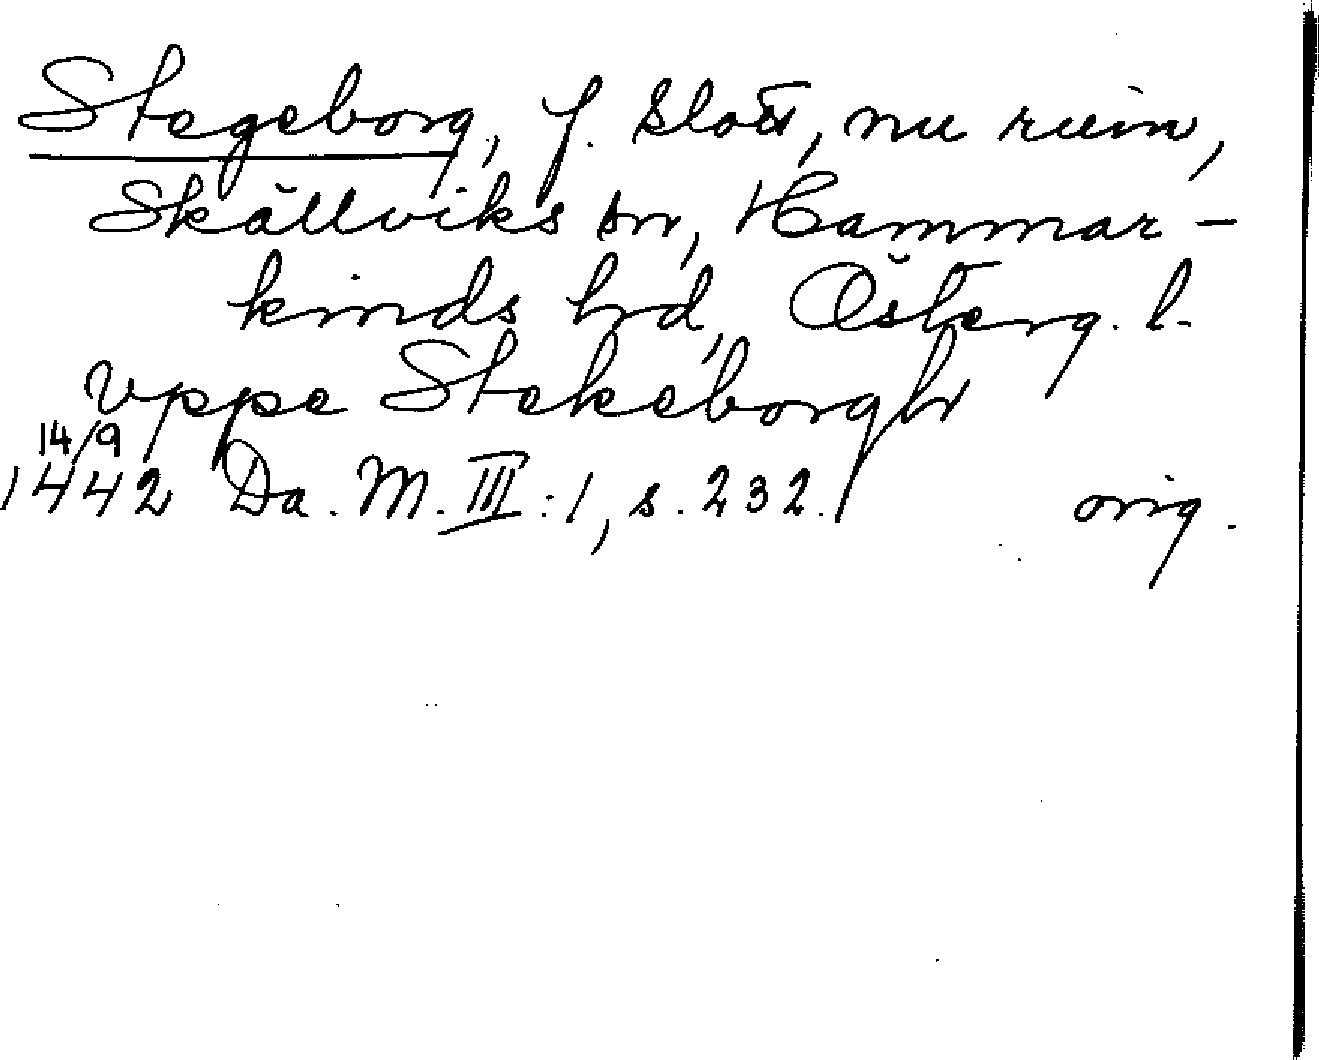 Stegeborg, f. slott, nu ruin,
Skällviks sn, Hammar-
kinds hd, Österg. l.
vppe Stekeborgh
14/9
1442 Da. M. III:1, s. 232. orig.